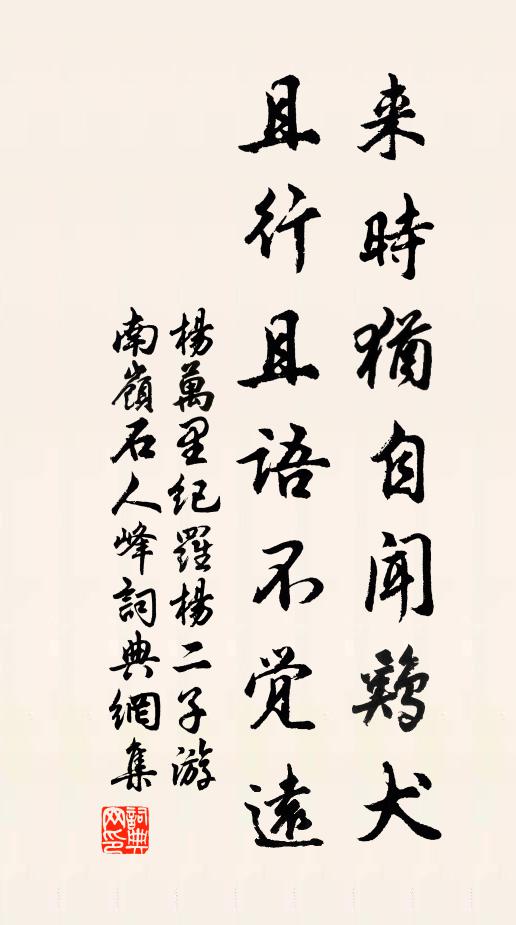 来時猶自聞鷄犬
且行且語不覚遠
楊萬里紀羅楊二子游
南嶺石人峰詞典網集
詞典网印